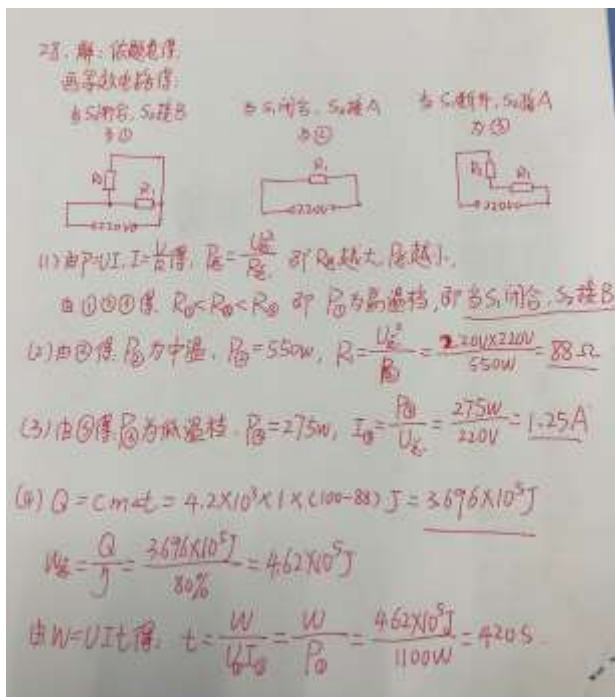 28. 解: 依题意得:
画等效电路得:
当S₁闭合, S₂接B
为①
当S₁闭合, S₂接A
为②
当S₁断开, S₂接A
为③
R₂
R₁
220V
R₁
220V
R₂
R₁
220V
(1) 由P=UI, I=U/R得, P总=U总²/R总 即R总越大, P总越小,
由①②③得, R①<R②<R③ 即P①为高温档, 即当S₁闭合, S₂接B
(2) 由②得 P②为中温, P②=550W, R₁=U总²/P②=220V×220V/550W=88Ω
(3) 由③得 P③为低温档, P③=275W, I③=P③/U总=275W/220V=1.25A
(4) Q=cmΔt=4.2×10³×1×(100-88)J=3.696×10⁵J
W总=Q/η=3.696×10⁵J/80%=4.62×10⁵J
由W=UIt得, t=W/U总I①=W/P①=4.62×10⁵J/1100W=420S.